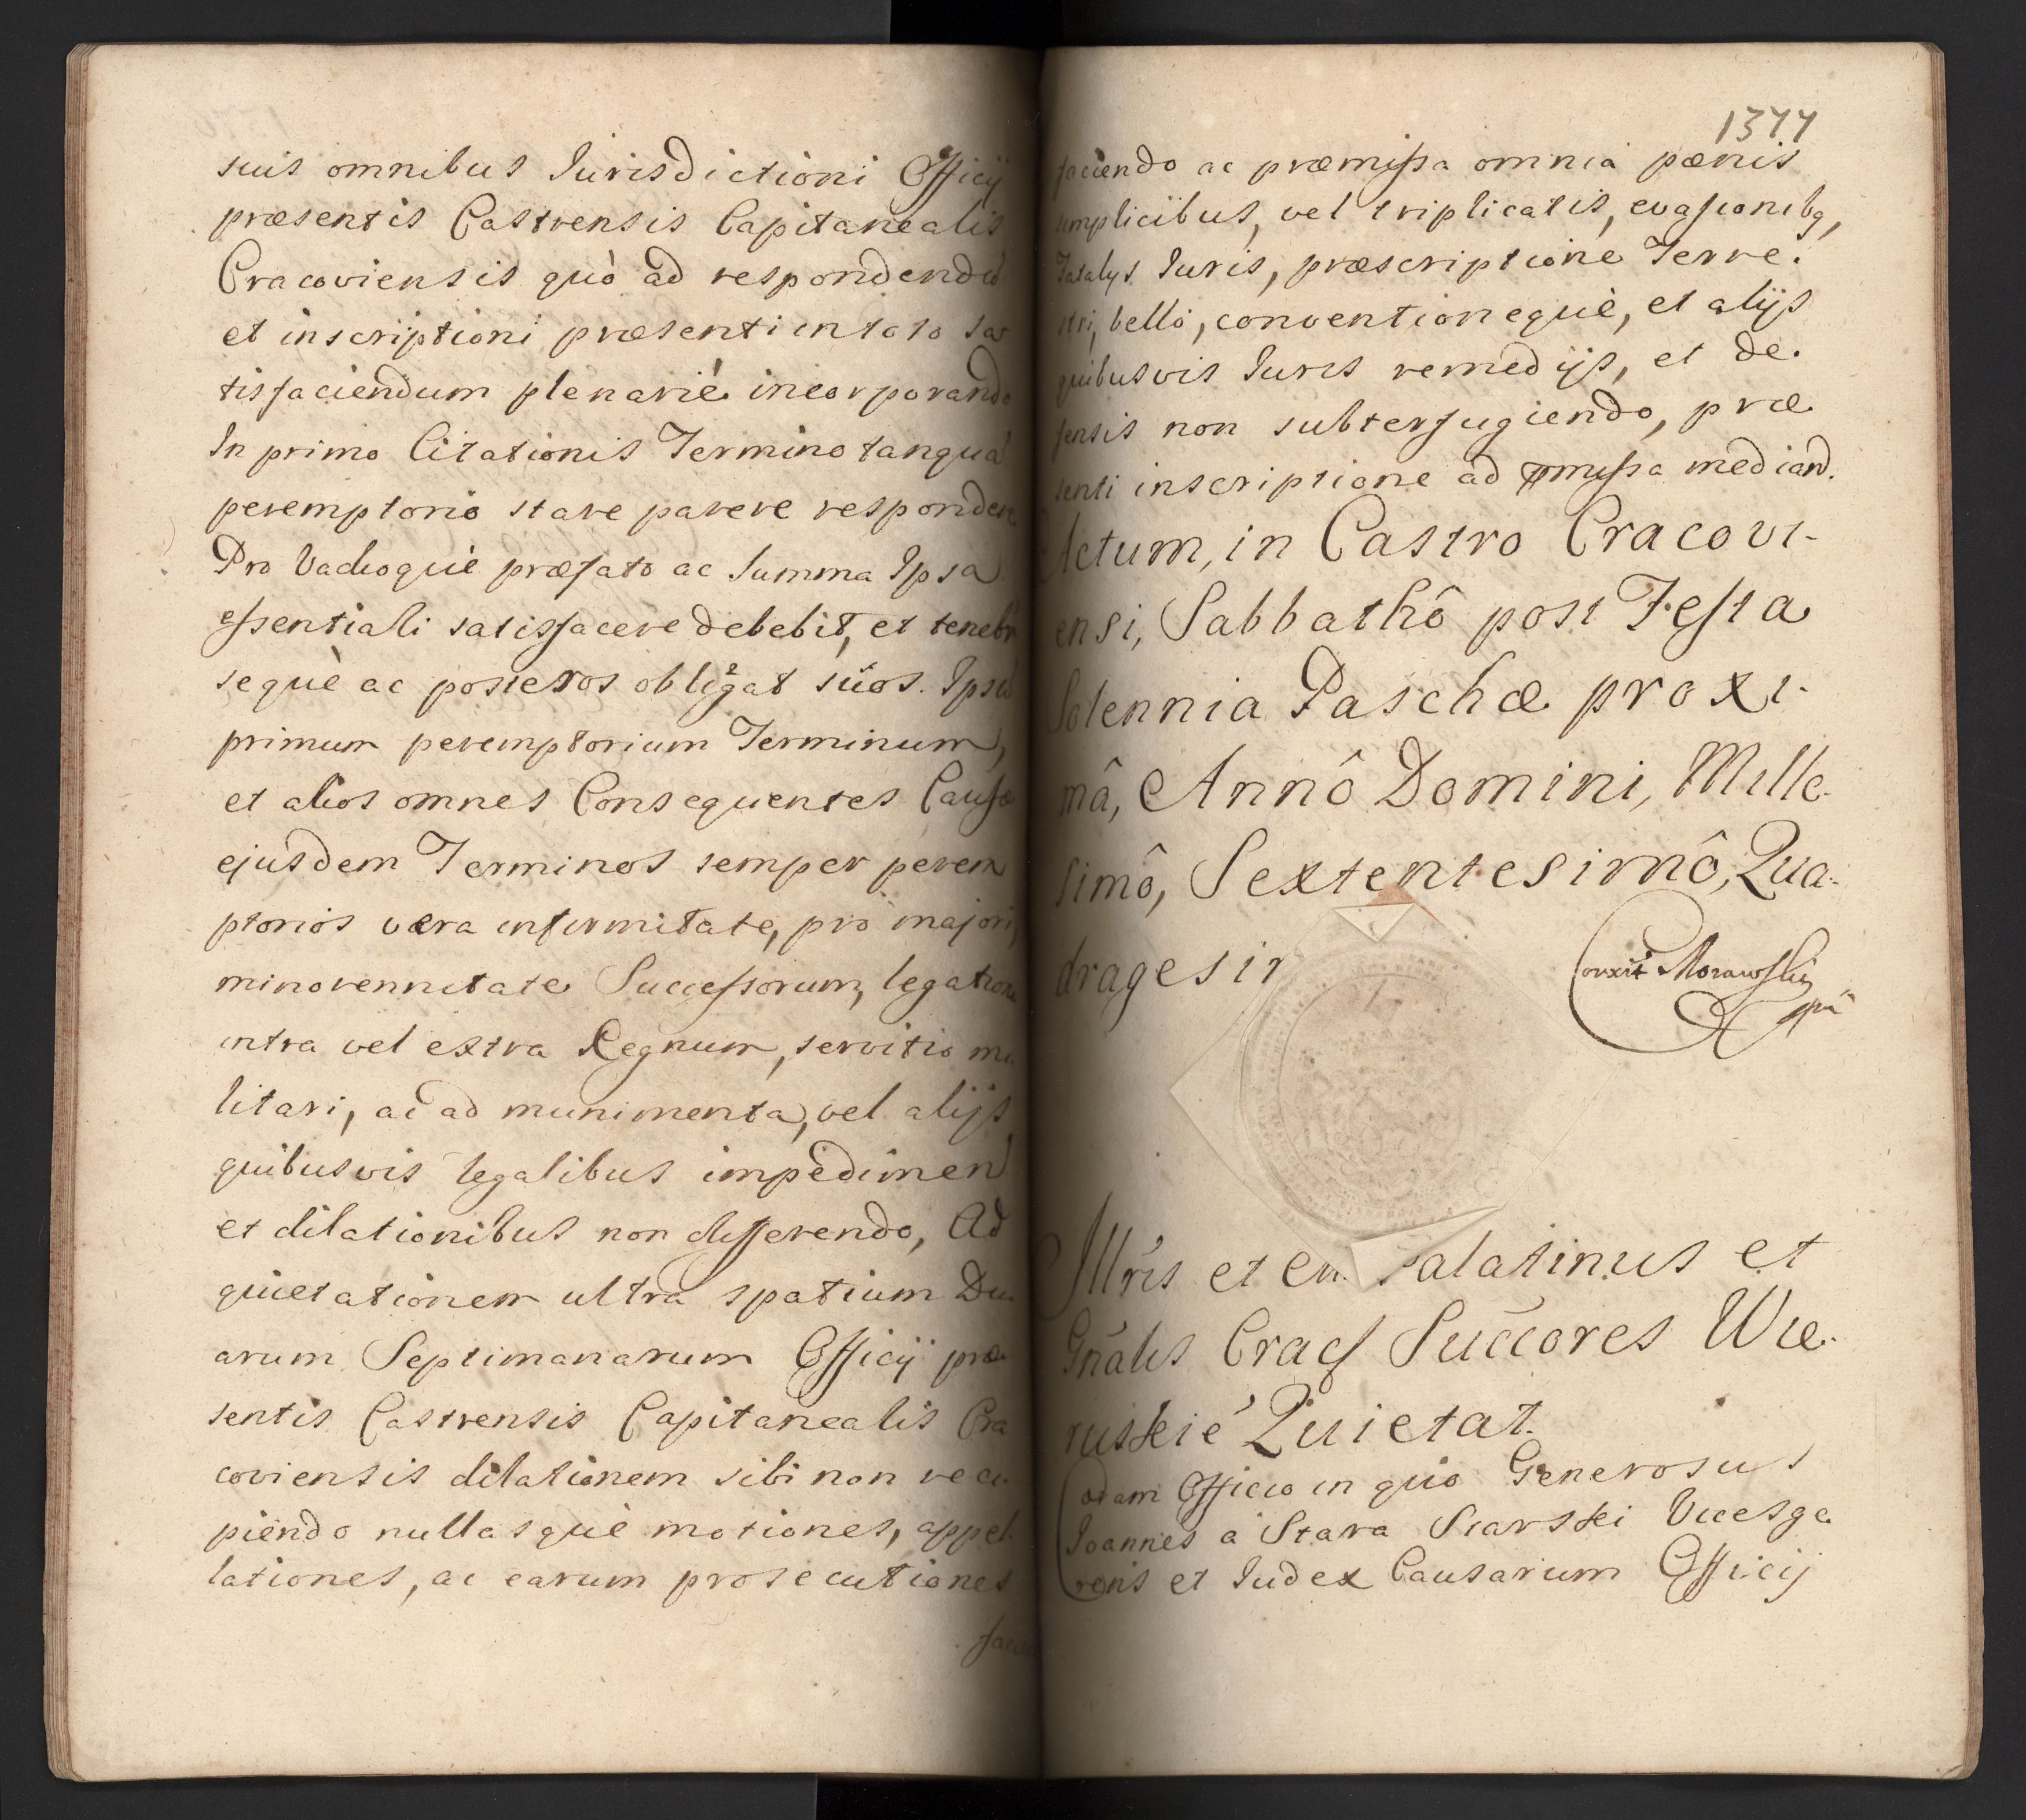 suis omnibus Iurisdictioni Officij
præsentis Castrensis Capitanealis
Cracoviensis quò ad respondendũ
et inscriptioni præsenti in toto sa
tisfaciendum plenariè incorporando
In primo Citationis Termino tanquã
peremptorio stare parere respondere
Pro Vadioquè præfato ac summa Ipsa
eſsentiali satisfacere debebit, et tenebr
sequè ac posteros obligat suos. Ipsũ
primum peremptorium Terminum,
et alios omnes Consequentes Cauſæ
ejusdem Terminos semper perem
ptorios vera infirmitate, pro majori,
minorennitate Succeſsorum, legatione
intra vel extra Regnum, servitio mi
litari, ac ad munimenta, vel alijs
quibusvis legalibus impedimen
et dilationibus non differendo, Ad
quietationem ultra spatium Du
arum Septimanarum Officij præ
sentis Castrensis Capitanealis Cra
coviensis dilationem sibi non reci
piendo nullasquè motiones, appel
lationes, ac earum prosecutiones
1377
faciendo ac præmiſsa omnia pænis
simplicibus, vel triplicatis, evaſionibq,
Iuris, præscriptione Terre.
stri, bello, conventionequè, et alijs
quibusvis Iuris remedijs, et de.
fensis non subterfugiendo, præ
senti inscriptione ad pmiſsa mediand.
Actum, in Castro Cracovi-
ensi, Sabbathô post Feſta
Solennia Paschæ proxi-
mâ, Annô Domini, Mille-
simô, Sextentesimô, Qua-
dragesi
Corrxit Morawſki
mpã
Illris et palatinus et
Gnãlis Cracſ Succores Wie-
ruskie Quietat.
Coram Officio in quo Generosus
Ioannes a Stara Starski Vicesge
rens et Iudex Causarum Officij